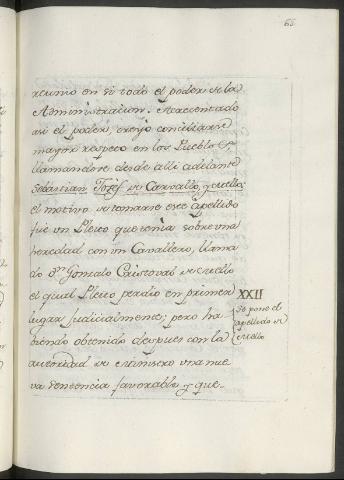 66
reunio en si todo el poder de la
Administracion. Acrecentado
asi el poder, creyò conciliarse
mayor respeto en los Pueblos,
llamandose desde alli adelante
Sebastian Josef de Carvallo, y Mello:
el motivo de tomarse ese apellido
fue un Pleito que tenia sobre una
heredad con un Cavallero, llama
do Dn Gonzalo Cristoval de Mello
el qual Pleito perdio en primer
lugar judicialmente; pero ha
biendo obtenido despues con la
autoridad de Ministro una nue
va Sentencia favorable y que
XXII
Se pone el
apellido de
Mello